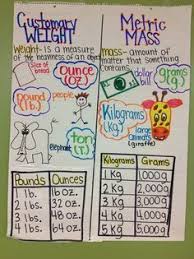 Customary
WEIGHT
weight- is a measure
of the heaviness of an object
slice of
bread
ounce
(oz)
pound
(lb)
people
elephant
ton
(t)
Pounds Ounces
1 lb. 16 oz.
2 lbs. 32 oz.
3 lbs. 48 oz.
4 lbs. 64 oz.
Metric
MASS
mass- amount of
matter that something
contains
dollar
bill
grams
(g)
Kilograms
(kg)
large
animals
(giraffe)
Kilograms Grams
1 kg 1,000g
2 kg 2,000g
3 kg 3,000g
4 kg 4,000g
5 kg 5,000g